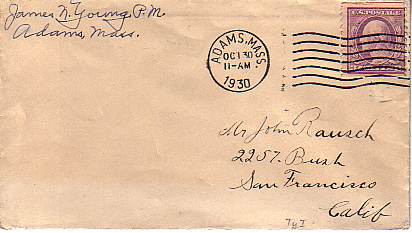 James N. Young, P.M.
Adams, Mass.
ADAMS, MASS.
OCT 30
11-AM
1930
U.S. POSTAGE
Mr John Rausch
2257. Bush
San Francisco
Calif
Ty I